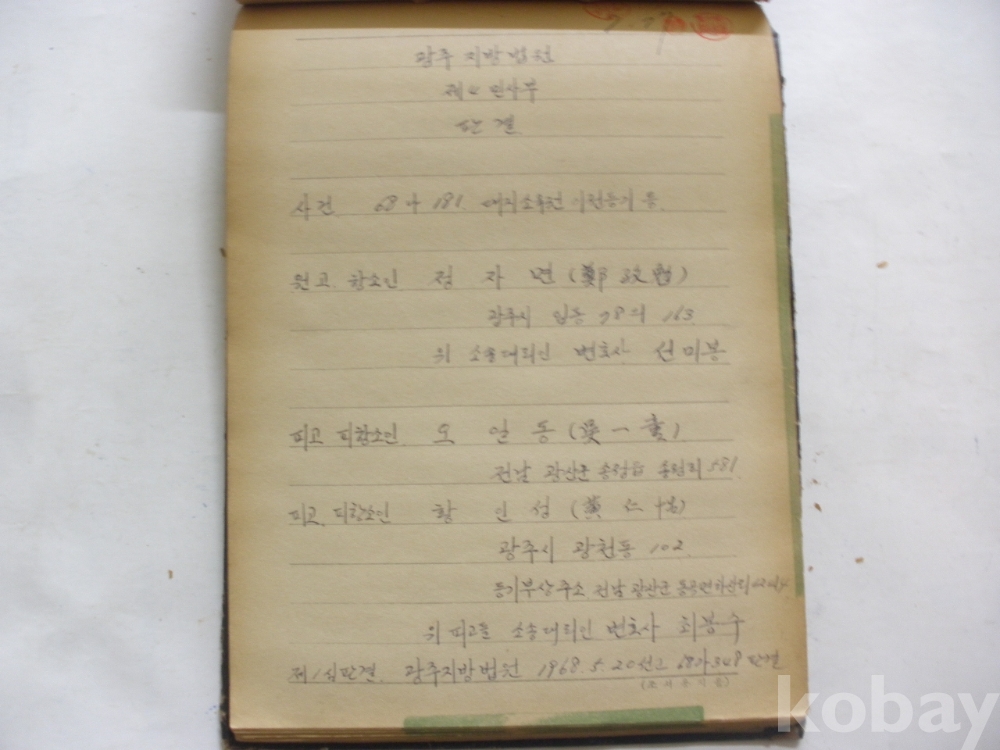 광주지방법원
제4민사부
판결
사건 68나 181. 대지소유권 이전등기 등.
원고. 항소인 정 자 면 (鄭
광주시 임동 78의 163.
위 소송대리인 변호사 선미봉
피고 피항소인 오 일 동 (吳一童)
전남 광산군 송정읍 송정리 581
피고. 피항소인 황 인 성 (黃仁
광주시 광천동 102.
등기부상주소 전남 광산군
위 피고들 소송대리인 변호사 최봉수
제1심판결. 광주지방법원 1968. 5. 20선고 68가348 판결
kobay